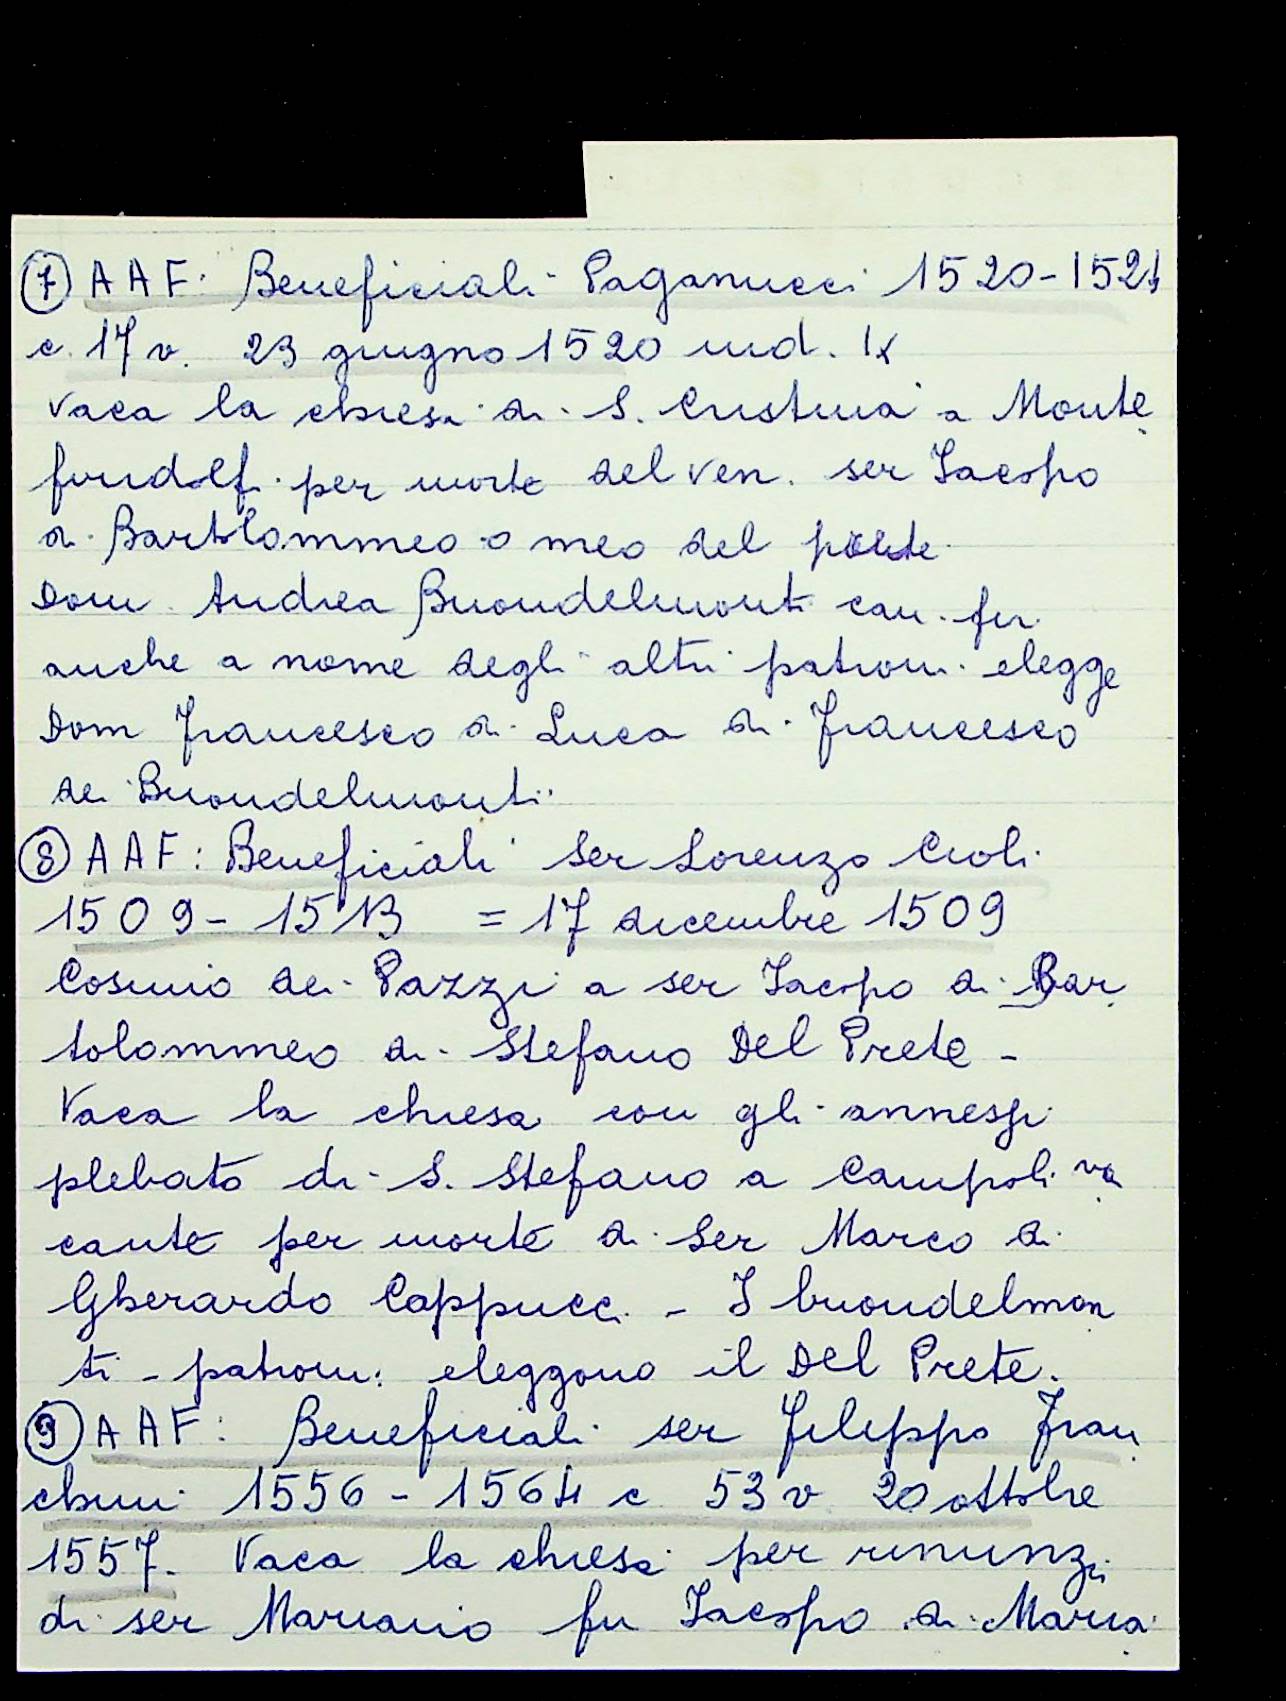 ⑦ AAF: Beneficiali Paganucci 1520-1521
c. 17 v. 23 giugno 1520 ind. IX
Vaca la chiesa di S. Cristina a Monte
firidolfi per morte del ven. ser Iacopo
di Bartolommeo o meo del prete
Dom. Andrea Buondelmonti can. fir.
anche a nome degli altri patroni elegge
Dom Francesco di Luca di Francesco
dei Buondelmonti.
⑧ AAF: Beneficiali Ser Lorenzo Cioli
1509-1513 = 17 dicembre 1509
Cosimo dei Pazzi a ser Iacopo di Bar
tolommeo di Stefano Del Prete -
Vaca la chiesa con gli annessi
plebato di S. Stefano a Campoli va
cante per morte di Ser Marco di
Gherardo Cappucci - I buondelmon
ti - patroni eleggono il Del Prete.
⑨ AAF: Beneficiali ser Filippo Fran
chini 1556-1564 c 53 v 20 ottobre
1557. Vaca la chiesa per rinunzi
di ser Mariano fu Iacopo di Maria